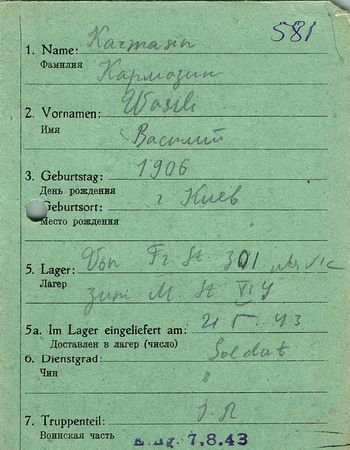 581
1. Name: Karmasin
Фамилия Кармозин
2. Vornamen: Wasili
Имя Василий
3. Geburtstag: 1906
День рождения
Geburtsort: г Киев
Место рождения
5. Lager: Von Fr. St 301
Лагер zum M. St VI
5a. Im Lager eingeliefert am: 21 5. 43
Доставлен в лагер (число)
6. Dienstgrad: Soldat
Чин
7. Truppenteil:
Воинская часть 7.8.43